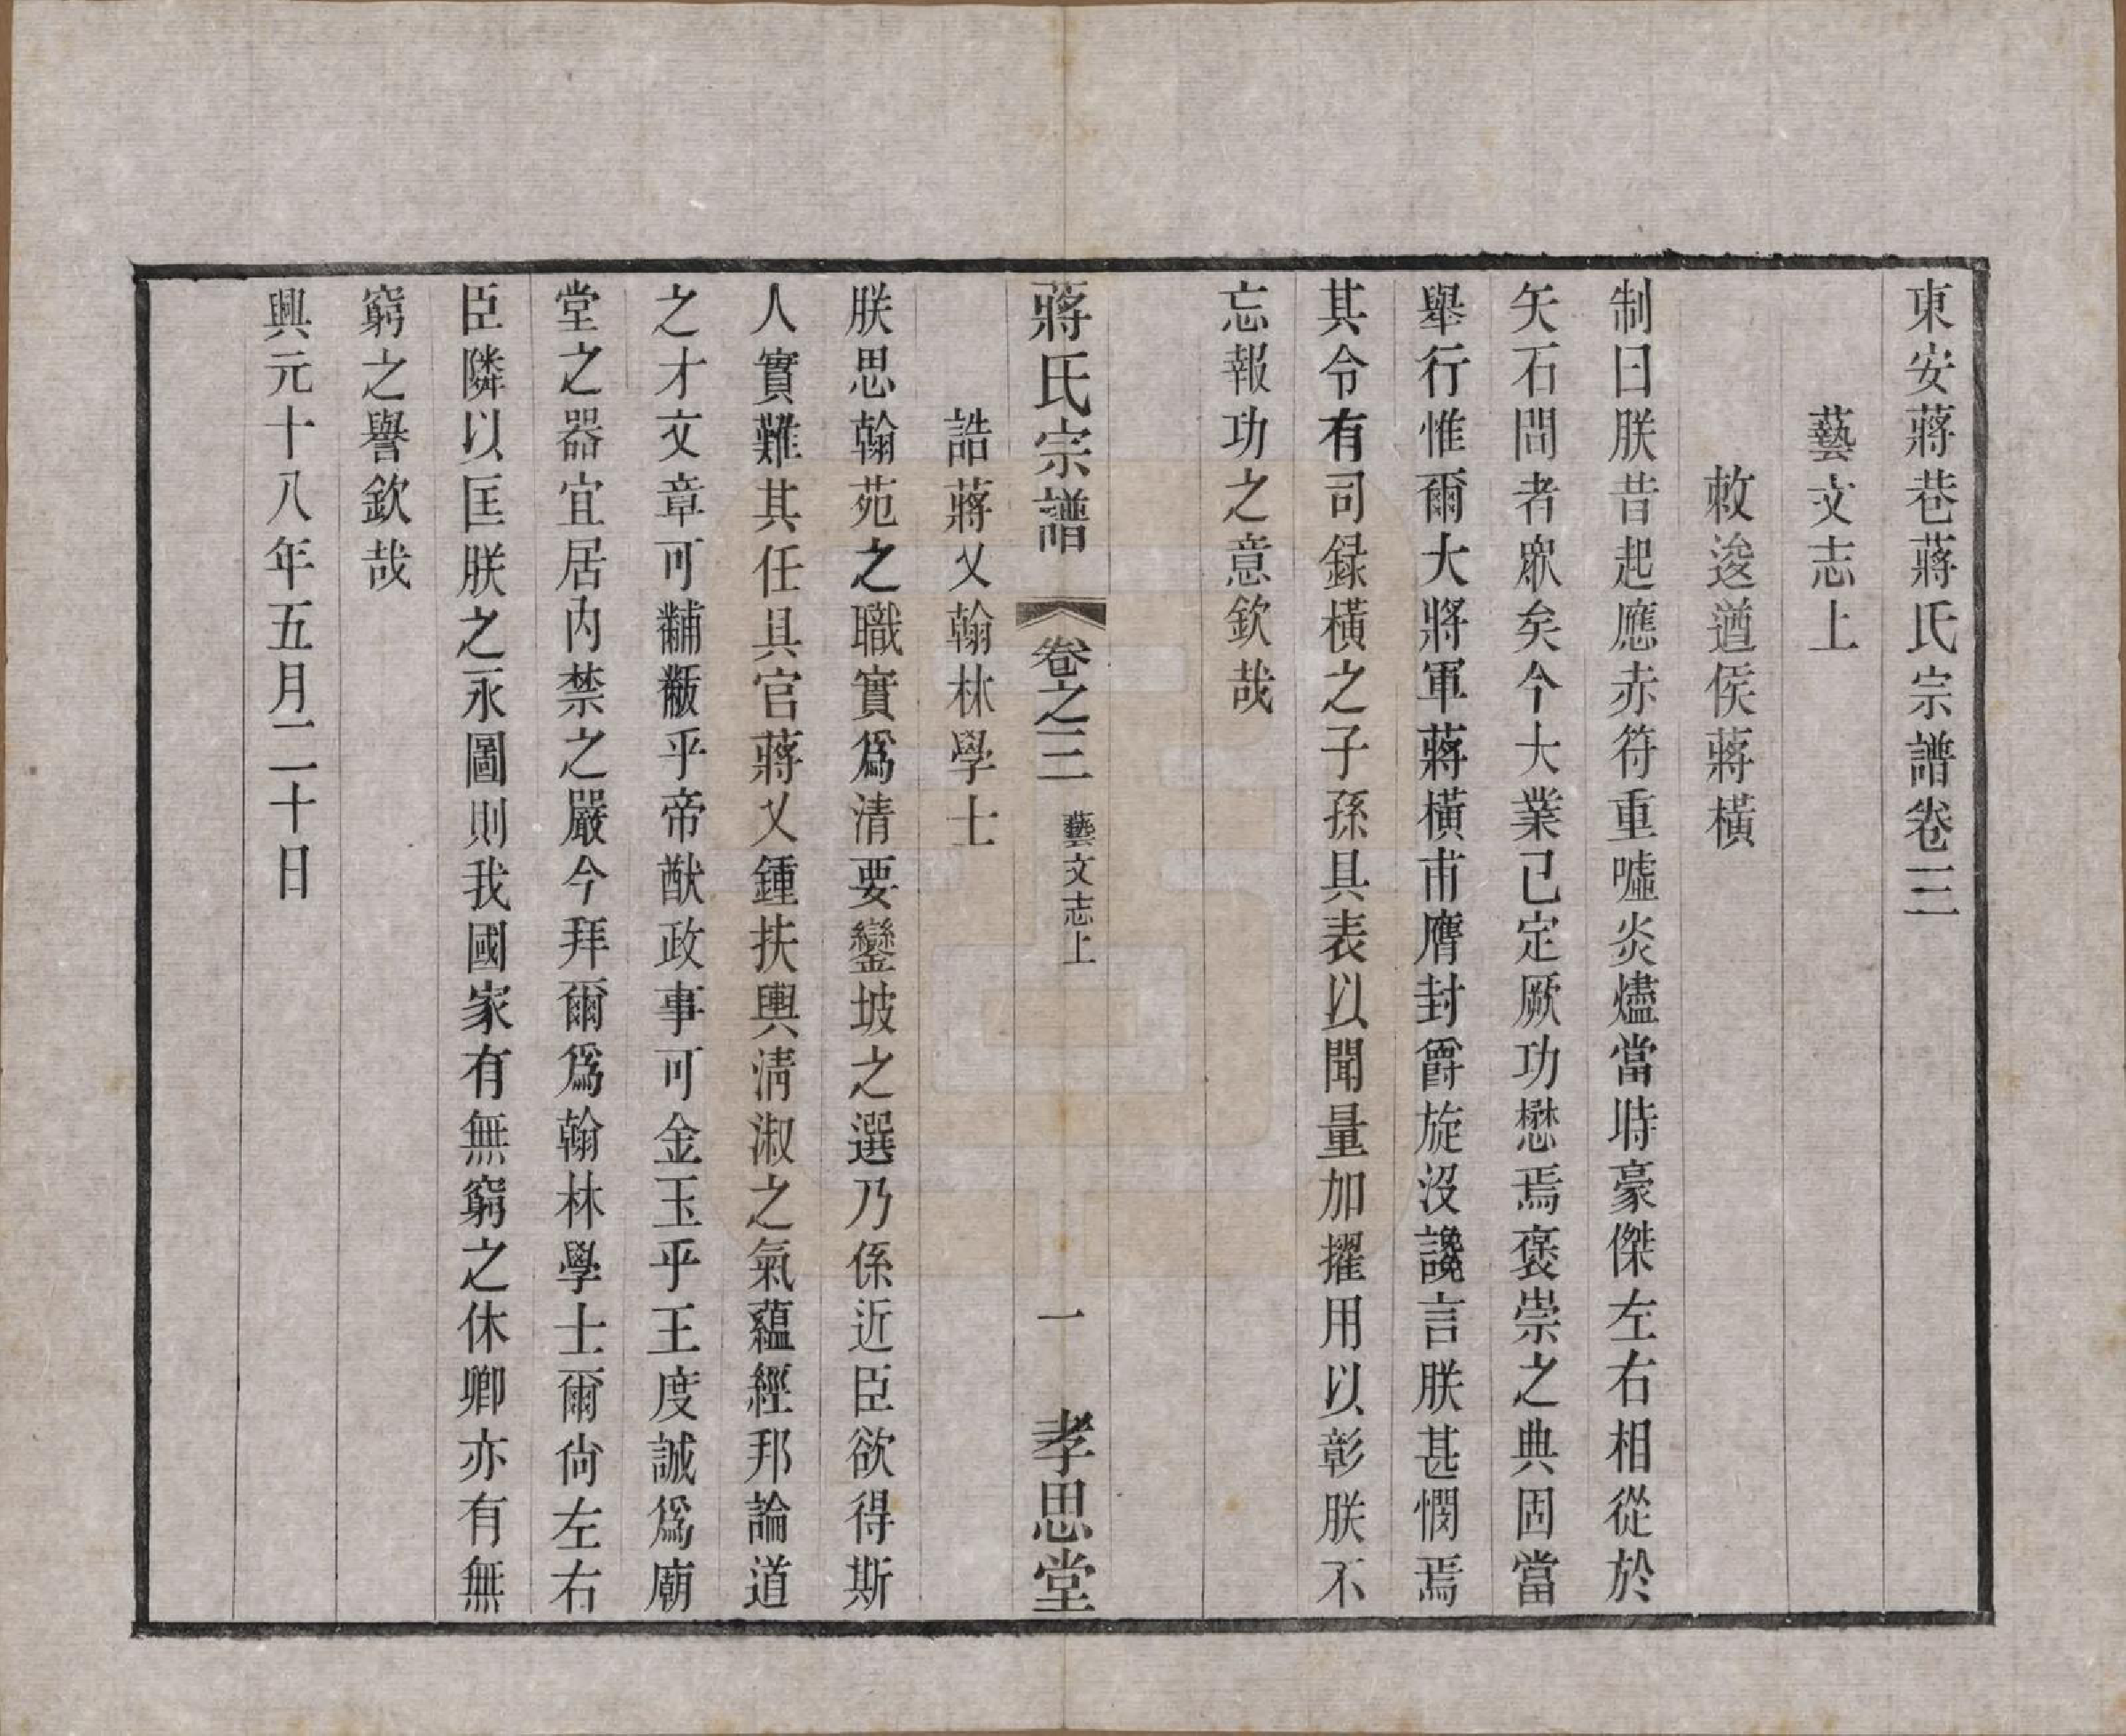 東安蔣巷蔣氏宗譜卷三
藝文志上
敕逡遒侯蔣橫
制曰朕昔起應赤符重噓炎燼當時豪傑左右相從於
矢石間者眾矣今大業已定厥功懋焉褒崇之典固當
舉行惟爾大將軍蔣橫甫膺封爵旋沒讒言朕甚憫焉
其令有司録橫之子孫具表以聞量加擢用以彰朕不
忘報功之意欽哉
蔣氏宗譜 卷之三 藝文志上 一 孝思堂
誥蔣乂翰林學士
朕思翰苑之職實爲清要鑾坡之選乃係近臣欲得斯
人實難其任具官蔣乂鍾扶輿清淑之氣蘊經邦論道
之才文章可黼黻乎帝猷政事可金玉乎王度誠爲廟
堂之器宜居內禁之嚴今拜爾爲翰林學士爾尙左右
臣隣以匡朕之永圖則我國家有無窮之休卿亦有無
窮之譽欽哉
興元十八年五月二十日